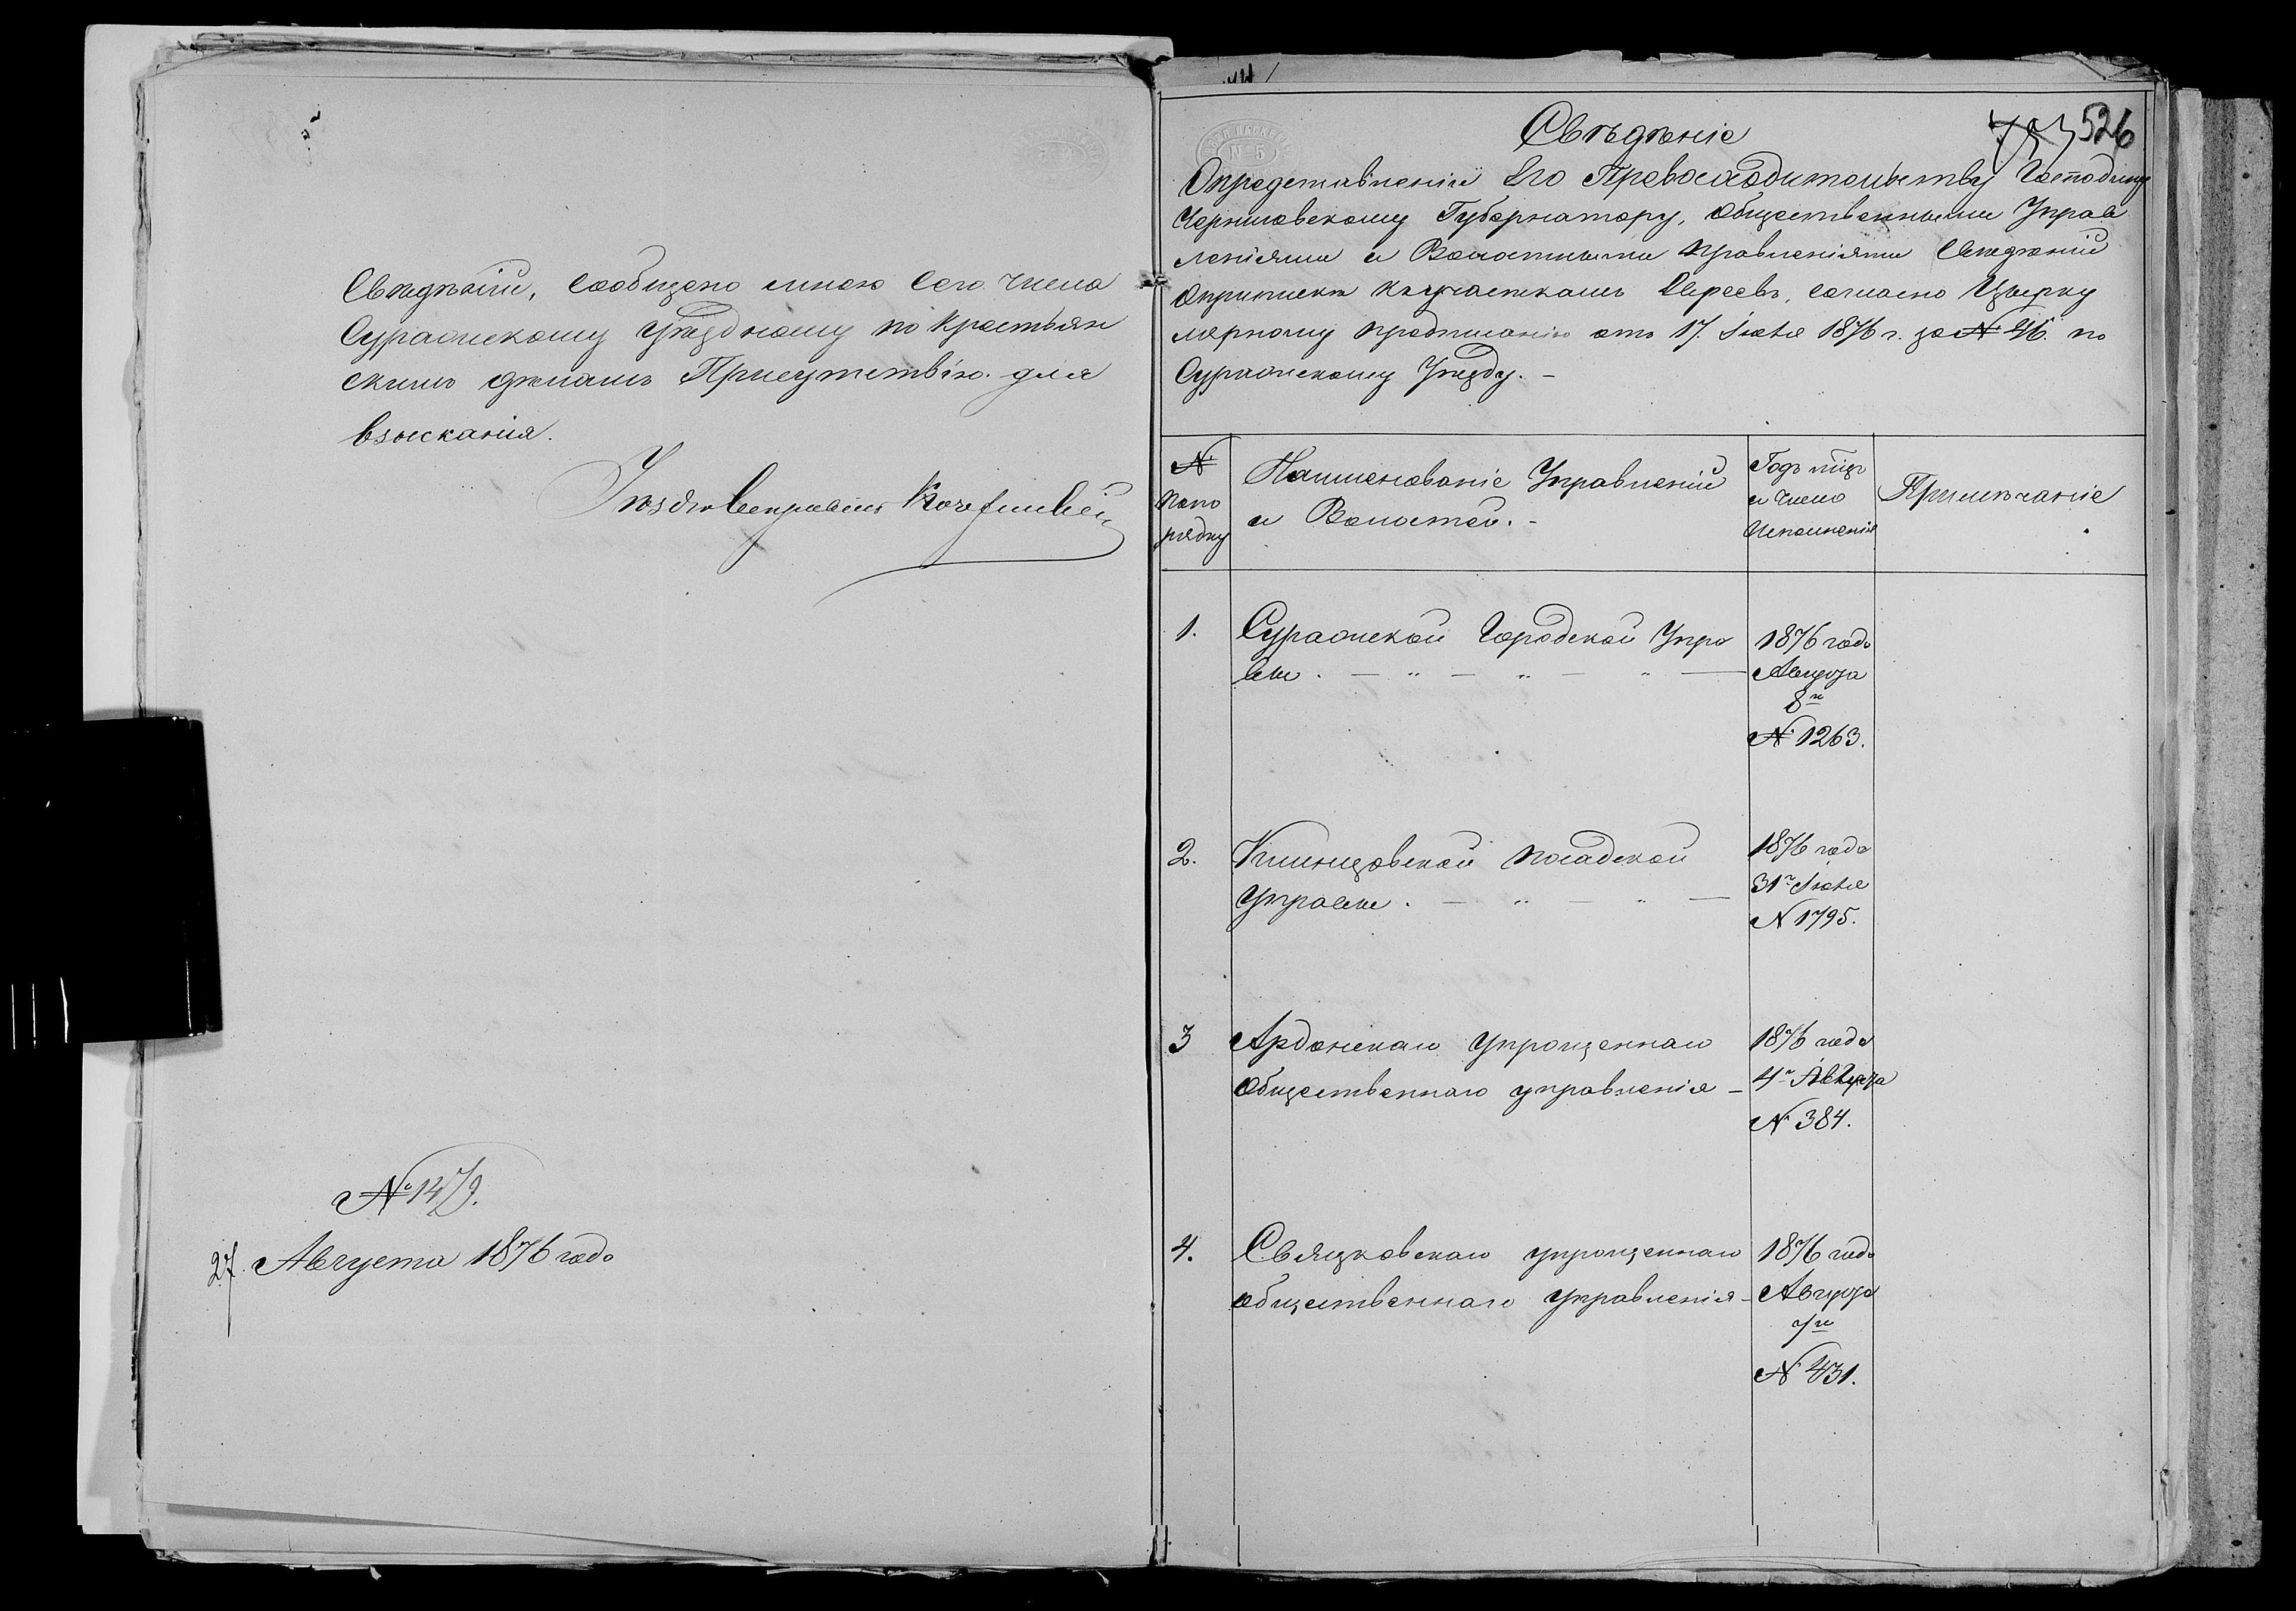 Свѣдѣній, сообщено мною сего числа
Суражскому уѣздному по крестьян
скимъ дѣламъ Присутствію для
взысканія.
Уѣздн Исправникъ
№ 1479.
27 Августа 1876 года
526
Свѣдѣніе
О представленіи Его Превосходительству Господину
Черниговскому Губернатору, общественными Управ
леніями и Волостными правленіями Свѣдѣній
о припискѣ къ участкамъ Евреевъ, согласно Цирку
лярному предписанію отъ 17. Іюля 1876 г. за № 46. по
Суражскому Уѣзду. –
№
по по
рядку
Наименованіе Управленій
и Волостей. –
Годъ мѣцъ
и число
Исполненія
Примѣчаніе
1. Суражской Городской Упра
вы . — „ — „ — „ —
1876 года
Августа
8го
№ 1263.
2. Клинцовской посадской
Управы . — „ — „ —
1876 года
31го Іюля
№ 1795.
3 Ардонскаго упрощеннаго
Общественнаго управленія –
1876 года
4го Августа
№ 384.
4. Свяцковскаго упрощеннаго
общественнаго управленія –
1876 года
Августа
7го
№ 431.